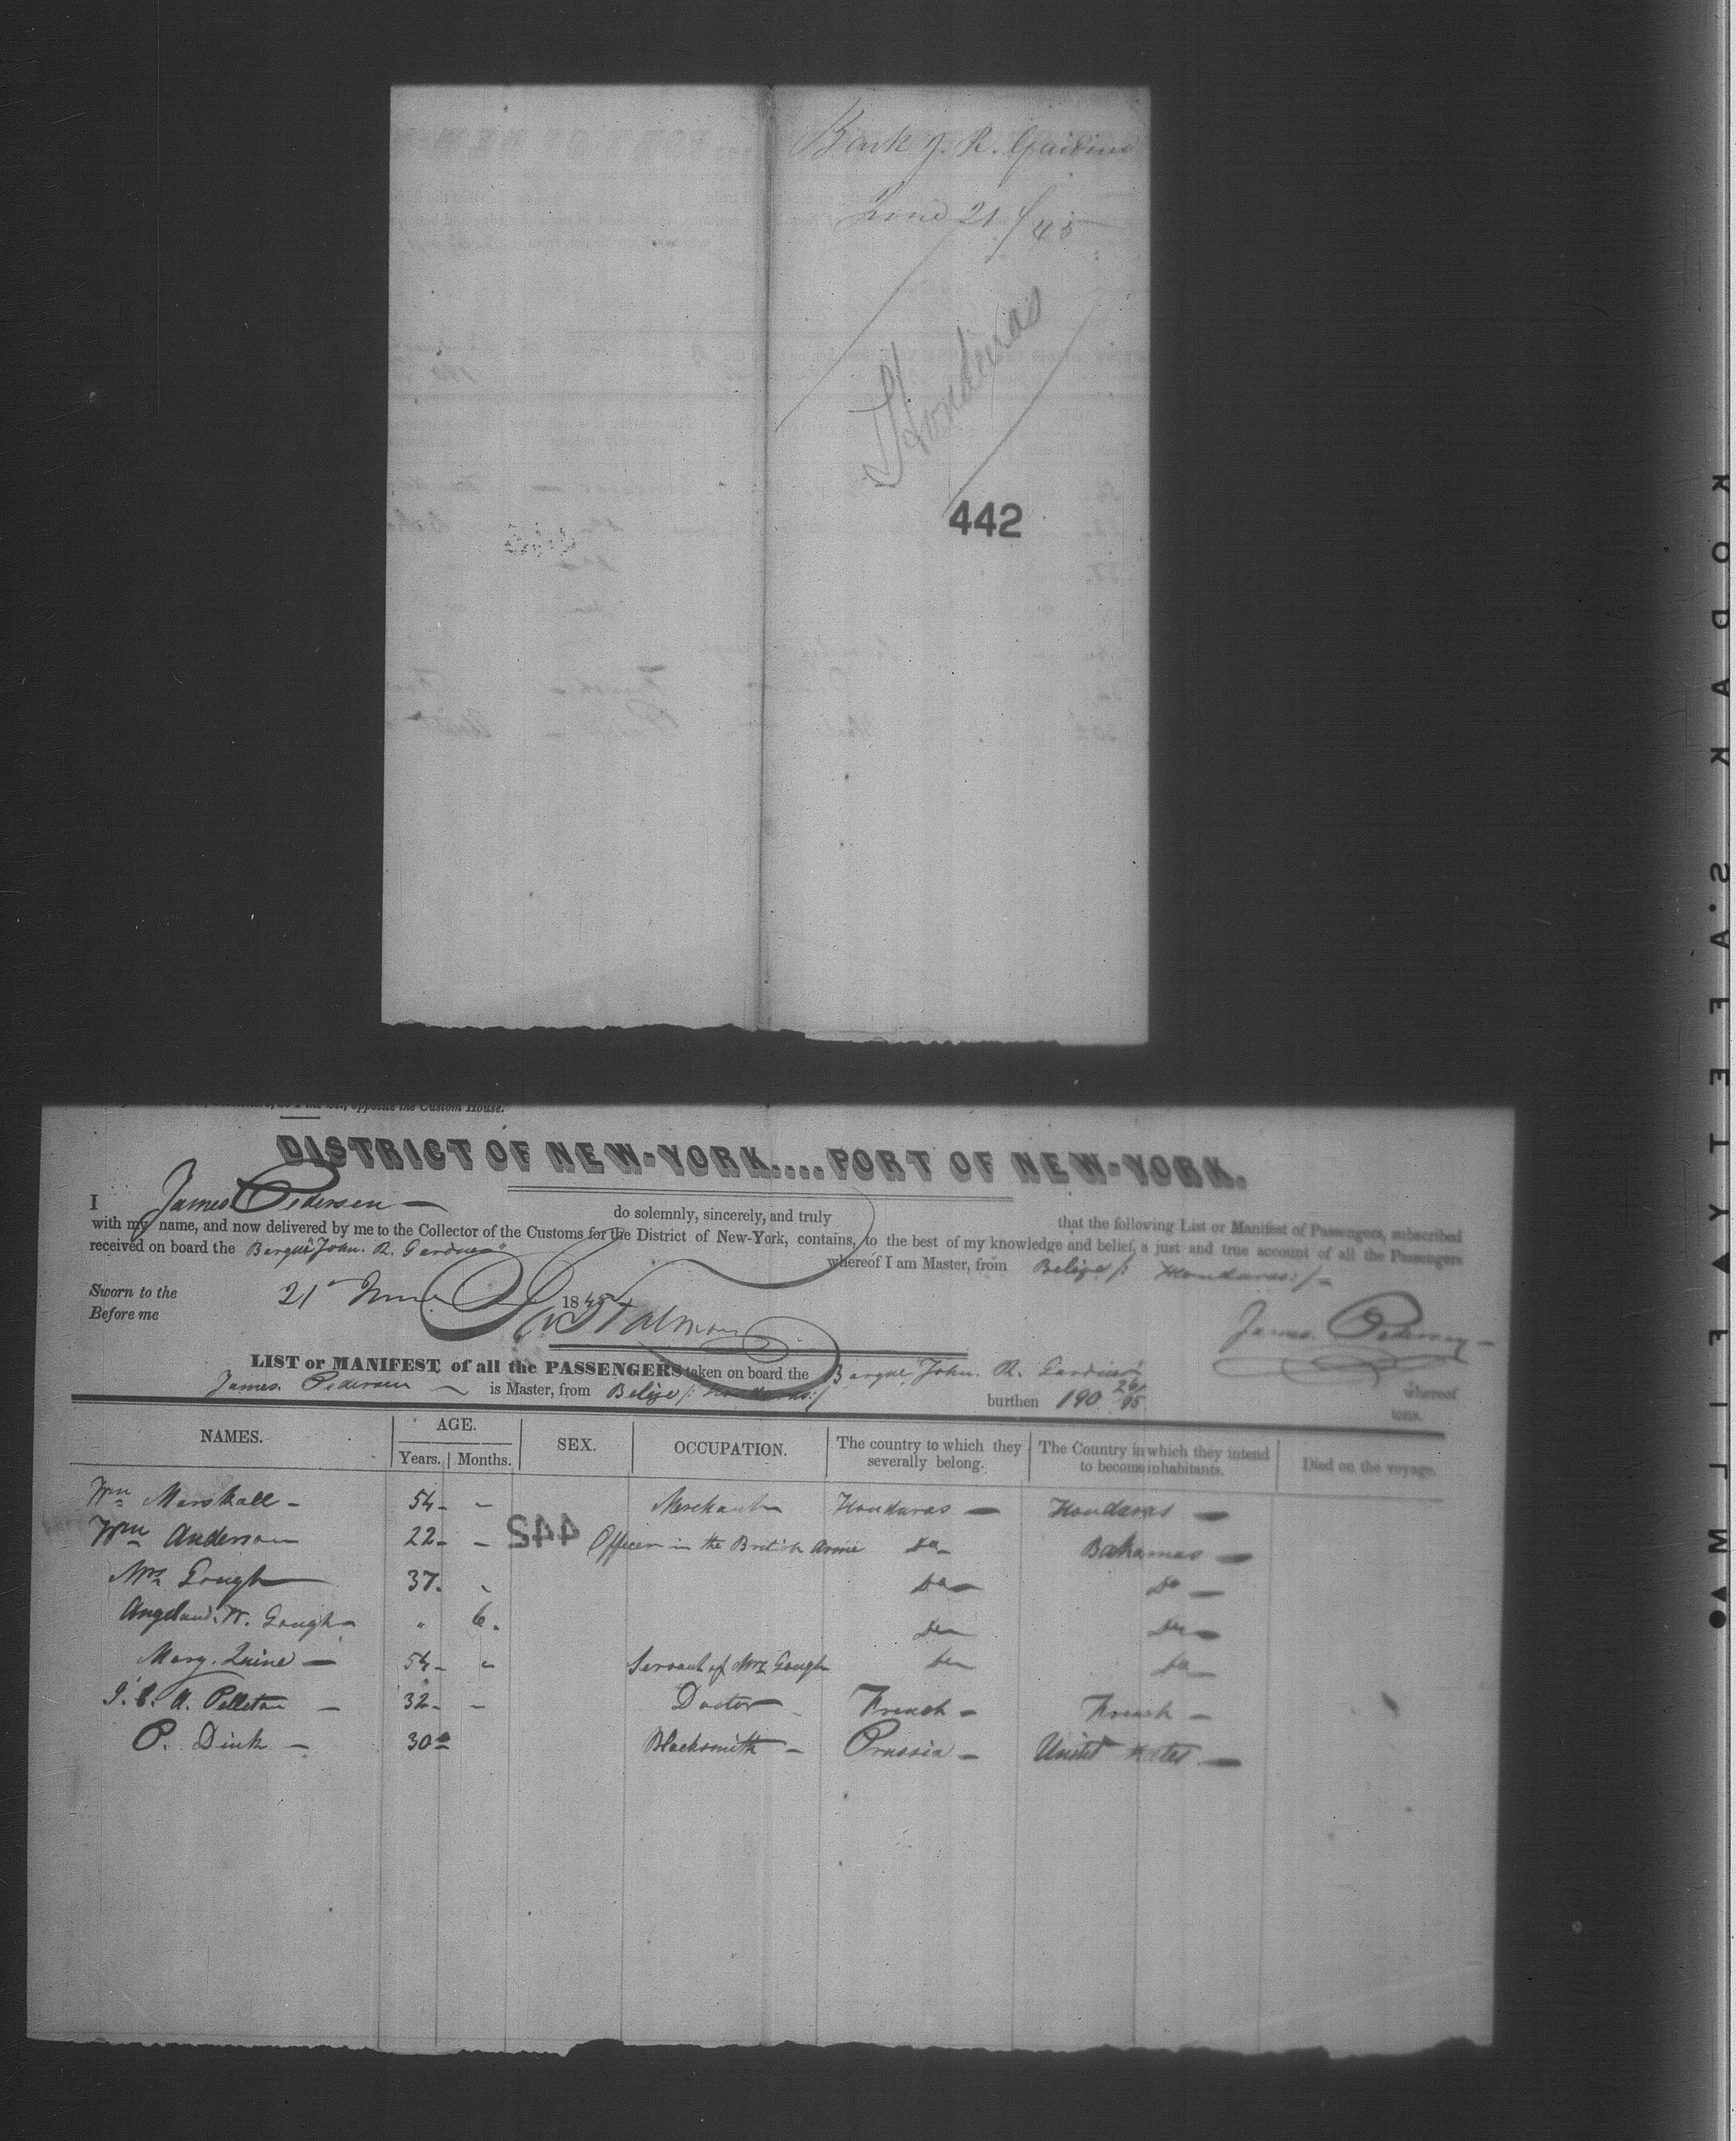 Bark J. R. Gardiner
June 21 / 45
Honduras
442
opposite the Custom House.
DISTRICT OF NEW-YORK....PORT OF NEW-YORK.
I James Pedersen — do solemnly, sincerely, and truly that the following List or Manifest of Passengers, subscribed
with my name, and now delivered by me to the Collector of the Customs for the District of New-York, contains, to the best of my knowledge and belief, a just and true account of all the Passengers
received on board the Barque "John. R. Gardiner" whereof I am Master, from Belize /: Honduras :/ —
Sworn to the 21 June 1845
Before me
James. Pedersen —
LIST or MANIFEST of all the PASSENGERS taken on board the Barque "John. R. Gardiner" whereof
James. Pedersen — is Master, from Belize /: Honduras :/ burthen 190 26/95 tons.
NAMES. AGE. Years. Months. SEX. OCCUPATION. The country to which they severally belong. The Country in which they intend to become inhabitants. Died on the voyage.
Wm Marshall - 54 - - Merchant Honduras — Honduras —
Wm Anderson 22 - - Officer in the British Armie Do - Bahamas —
442
Mrs Gough 37. - Do — Do —
W. Gough — " 6. Do — Do —
Mary. Quine — 54 - - Servant of Mrs Gough Do — Do —
A. Pelletan — 32 - - Doctor - French - French -
P. Dink — 30 - Blacksmith - Prussia - United States —
KODAK S.AFETY FILM